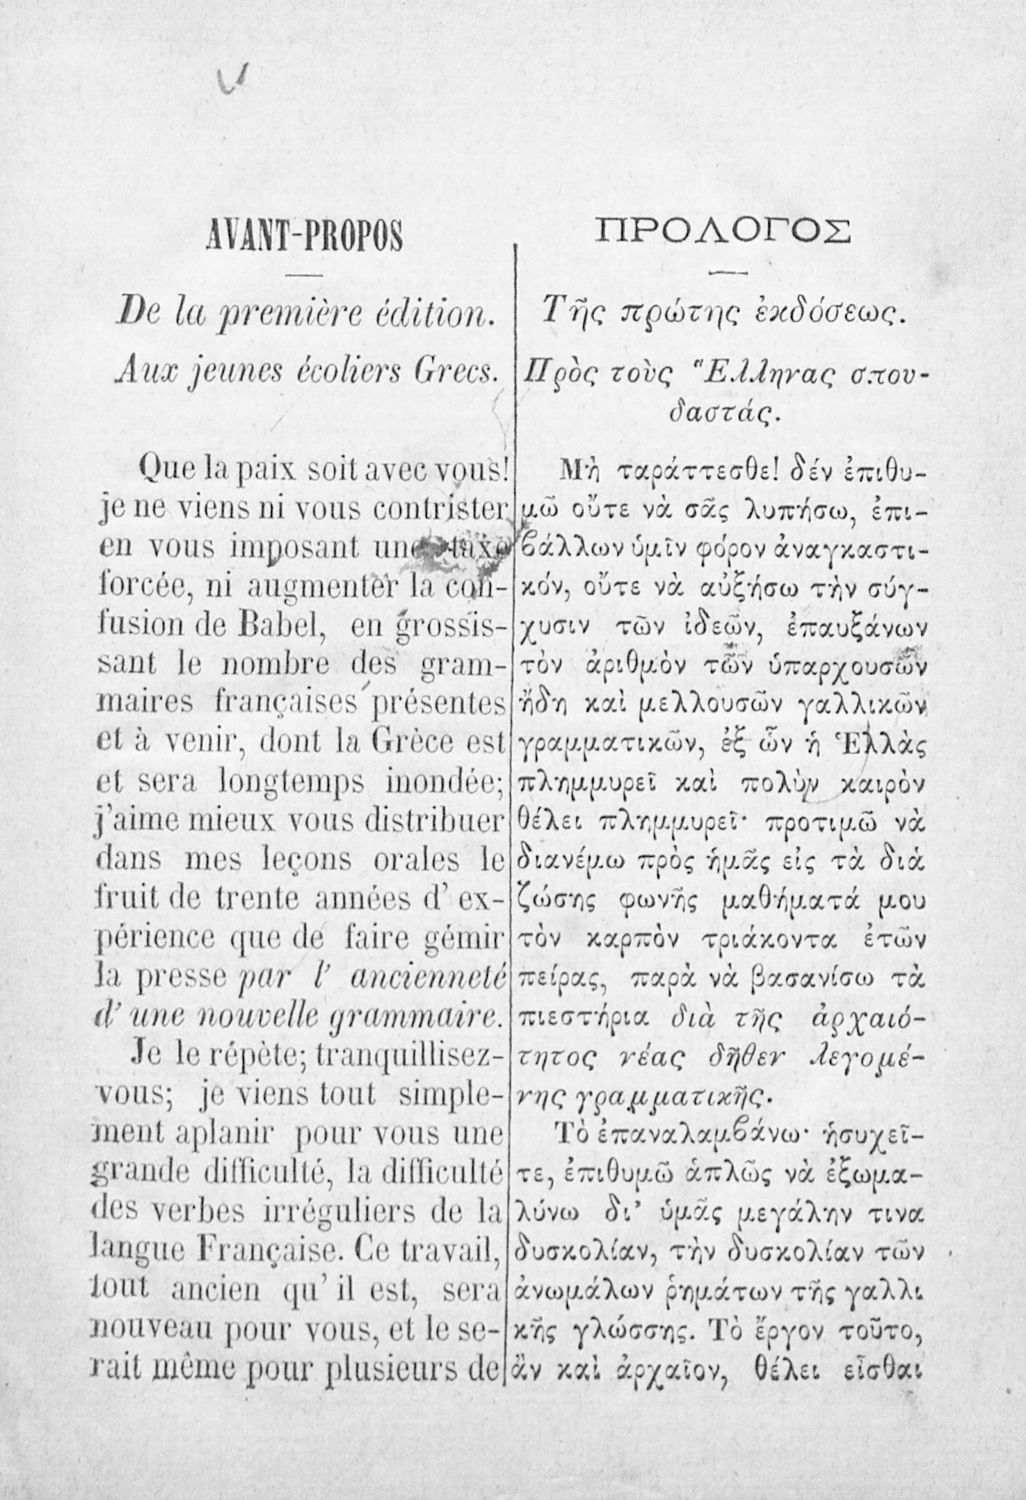 AVANT-PROPOS
De la première édition.
Aux jeunes écoliers Grecs.
Que la paix soit avec vous!
je ne viens ni vous contrister
en vous imposant une taxe
forcée, ni augmenter la con-
fusion de Babel, en grossis-
sant le nombre des gram-
maires françaises présentes
et à venir, dont la Grèce est
et sera longtemps inondée;
j'aime mieux vous distribuer
dans mes leçons orales le
fruit de trente années d' ex-
périence que de faire gémir
la presse par l' ancienneté
d' une nouvelle grammaire.
Je le répète; tranquillisez-
vous; je viens tout simple-
ment aplanir pour vous une
grande difficulté, la difficulté
des verbes irréguliers de la
langue Française. Ce travail,
tout ancien qu' il est, sera
nouveau pour vous, et le se-
rait même pour plusieurs de
ΠΡΟΛΟΓΟΣ
Τῆς πρώτης ἐκδόσεως.
Πρὸς τοὺς Ἕλληνας σπου-
δαστάς.
Μὴ ταράττεσθε! δέν ἐπιθυ-
μῶ οὔτε νὰ σᾶς λυπήσω, ἐπι-
βάλλων ὑμῖν φόρον ἀναγκαστι-
κόν, οὔτε νὰ αὐξήσω τὴν σύγ-
χυσιν τῶν ἰδεῶν, ἐπαυξάνων
τὸν ἀριθμὸν τῶν ὑπαρχουσῶν
ἤδη καὶ μελλουσῶν γαλλικῶν
γραμματικῶν, ἐξ ὧν ἡ Ἑλλὰς
πλημμυρεῖ καὶ πολὺν καιρὸν
θέλει πλημμυρεῖ· προτιμῶ νὰ
διανέμω πρὸς ἡμᾶς εἰς τὰ διὰ
ζώσης φωνῆς μαθήματά μου
τὸν καρπὸν τριάκοντα ἐτῶν
πείρας, παρὰ νὰ βασανίσω τὰ
πιεστήρια διὰ τῆς ἀρχαιό-
τητος νέας δῆθεν λεγομέ-
νης γραμματικῆς.
Τὸ ἐπαναλαμβάνω· ἡσυχεῖ-
τε, ἐπιθυμῶ ἁπλῶς νὰ ἐξωμα-
λύνω δι' ὑμᾶς μεγάλην τινα
δυσκολίαν, τὴν δυσκολίαν τῶν
ἀνωμάλων ῥημάτων τῆς γαλλι
κῆς γλώσσης. Τὸ ἔργον τοῦτο,
ἂν καὶ ἀρχαῖον, θέλει εἶσθαι